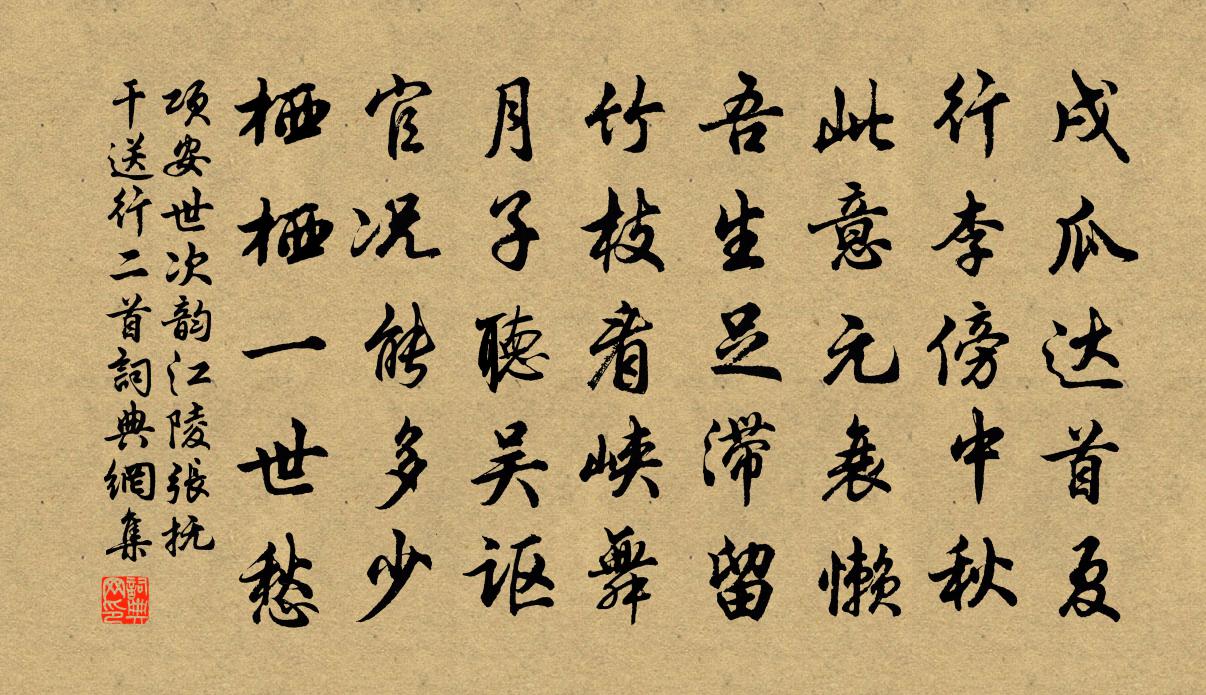 戍瓜达首夏
行李傍中秋
此意元衰懒
吾生足滞留
竹枝看峡舞
月子聽吴讴
官况能多少
栖栖一世愁
项安世次韵江陵張抚
干送行二首詞典網集
詞典网印